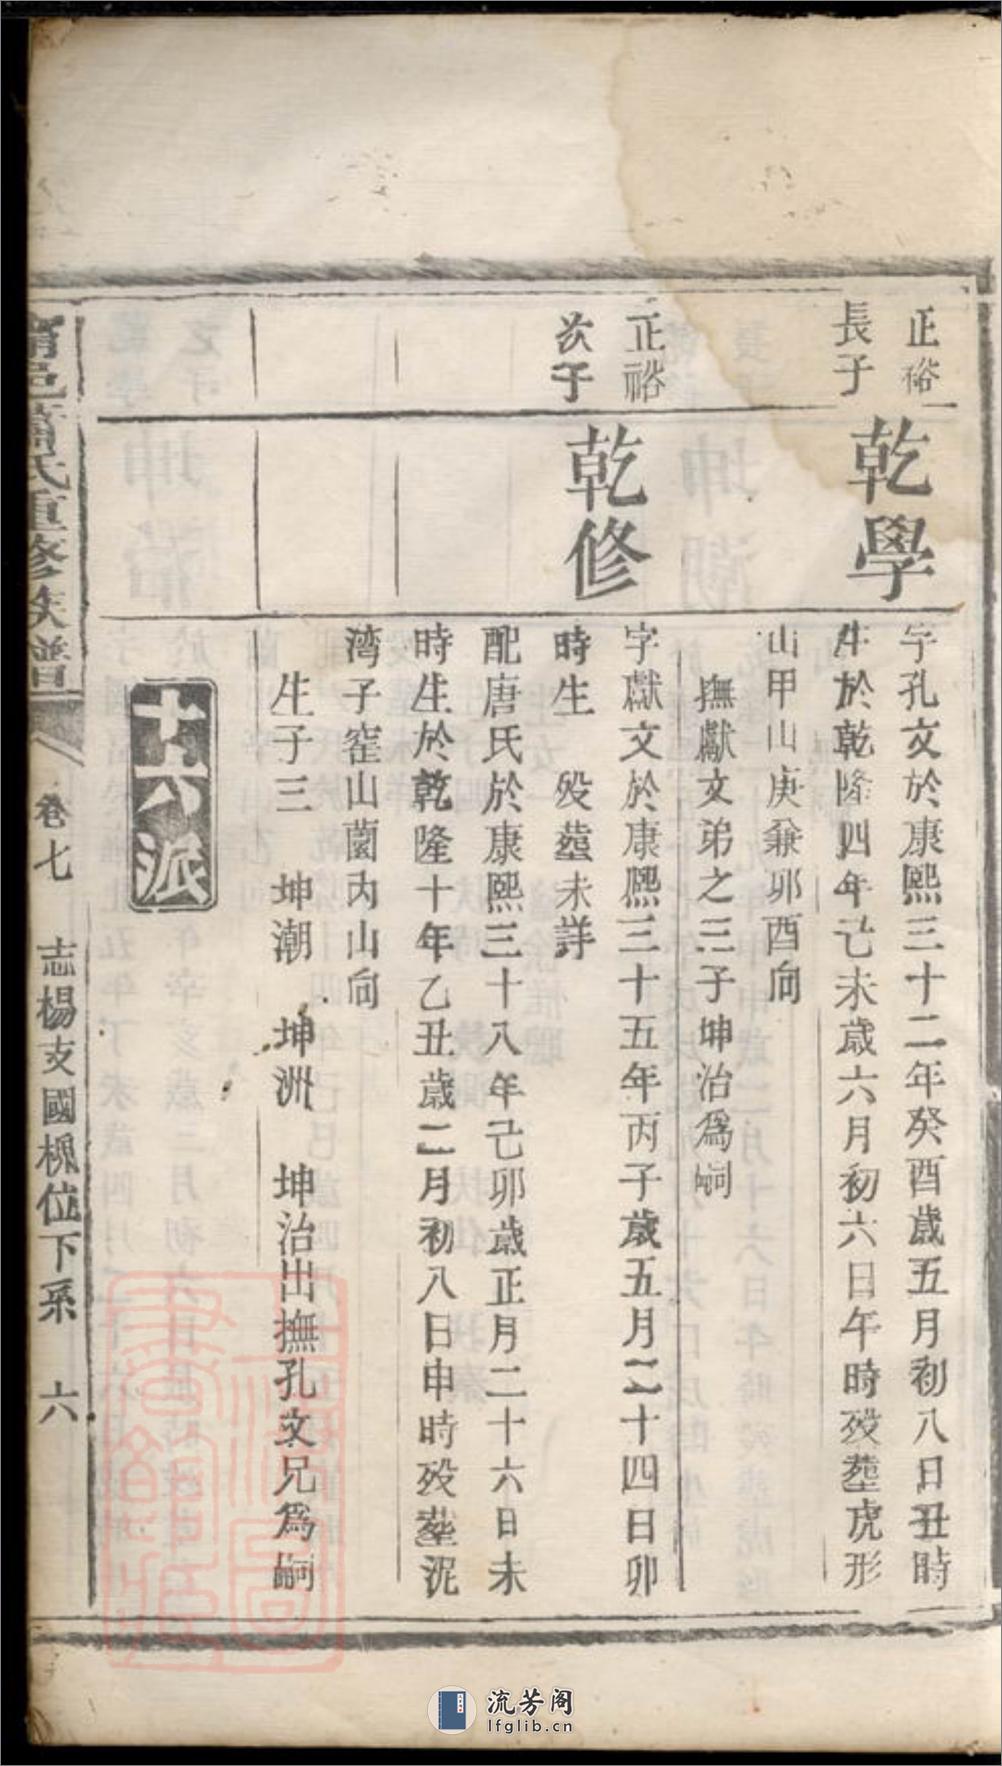 正裕
長子
乾學
字孔文於康熙三十二年癸酉歲五月初八日丑時
生於乾隆四年己未歲六月初六日午時歿塟虎形
山甲山庚兼卯酉向
撫獻文弟之三子坤治爲嗣
正裕
次子
乾修
字獻文於康熙三十五年丙子歲五月二十四日卯
時生 歿塟未詳
配唐氏於康熙三十八年己卯歲正月二十六日未
時生於乾隆十年乙丑歲二月初八日申時歿塟泥
湾子窰山薗内山向
生子三 坤潮 坤洲 坤治出撫孔文兄爲嗣
十六派
邑蕭氏重修族譜 卷七 志楊支國槐位下系 六
流芳阁
lfglib.cn